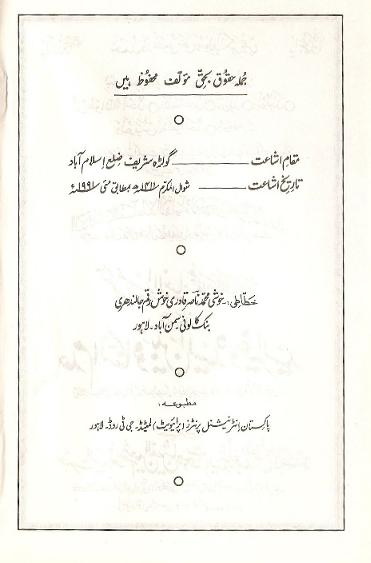 جملہ حقوق بحقِ مؤلف محفوظ ہیں
مقامِ اشاعت ــــــــــ گولڑہ شریف ضلع اسلام آباد
تاریخ اشاعت ــــــــــ شوال المکرم ۱۴۱۱ھ بمطابق مئی ۱۹۹۱ء
خطّاطی: خوشی محمد ناصر قادری خوش رقم جالندھری
بنک کالونی سمن آباد۔ لاہور
مطبوعہ:
پاکستان انٹرنیشنل پرنٹرز (پرائیویٹ) لمیٹڈ۔ جی ٹی روڈ۔ لاہور